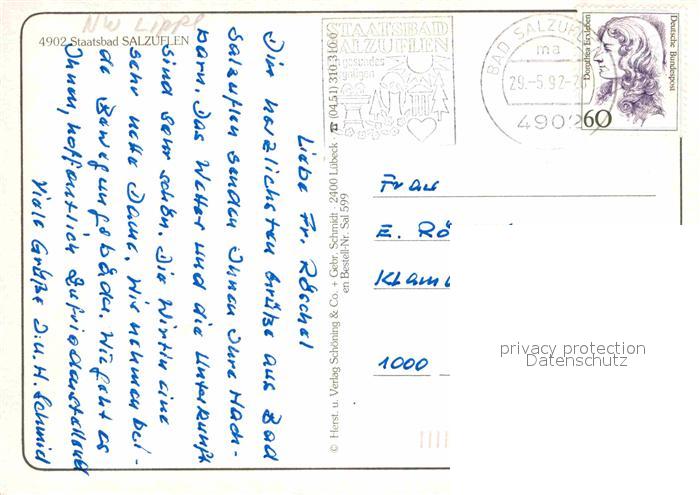 NW Lippe
4902 Staatsbad SALZUFLEN
Liebe Fr. Röschel
Die herzlichsten Grüße aus Bad
Salzuflen senden Ihnen Ihre Nach-
barn. Das Wetter und die Unterkunft
sind sehr schön. Die Wirtin eine
sehr nette Dame. Wir nehmen bei-
de Bewegungsbäder. Wie geht es
Ihnen, hoffentlich zufriedenstellend
Viele Grüße D.u.H. Schmid
© Herst. u. Verlag Schöning & Co. + Gebr. Schmidt · 2400 Lübeck · ☎ (04 51) 310 3 10 67
en Bestell-Nr. Sal 599
STAATSBAD
SALZUFLEN
gesundes
BAD SALZUFL
ma
29.-5.92-
4902
Dorothea Erxleben
Deutsche Bundespost
60
Frau
E. Rö
Klam
1000
privacy protection
Datenschutz